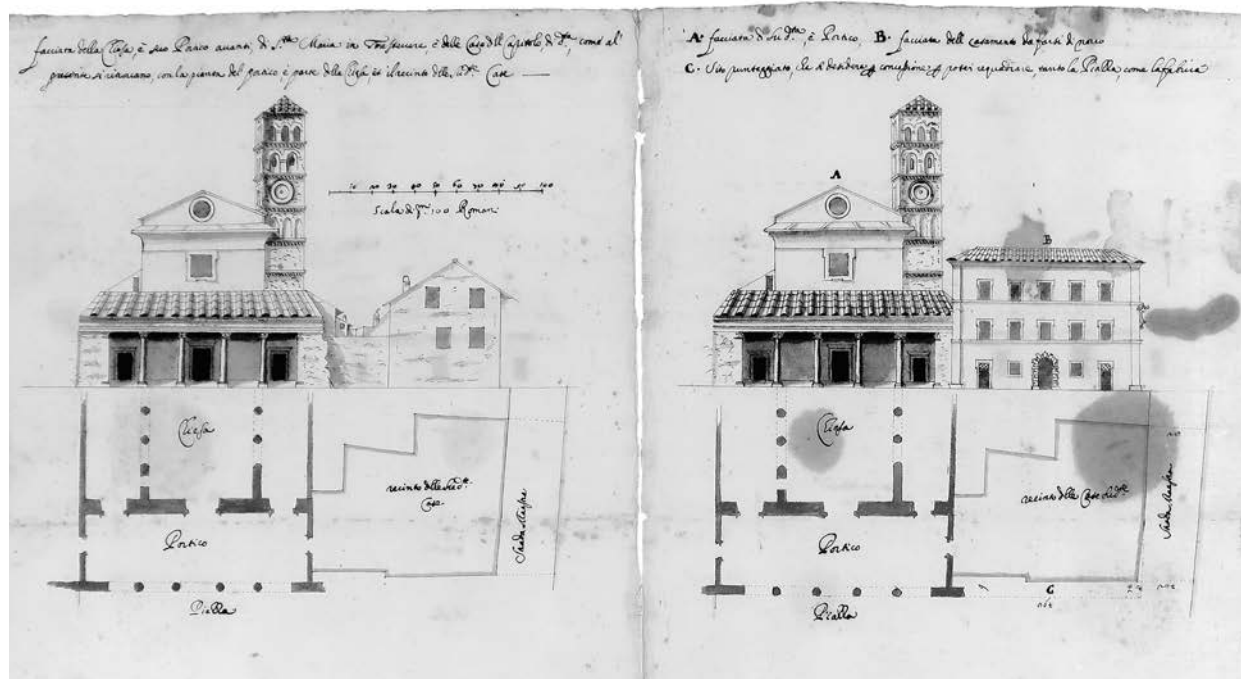 facciata della Chiesa, è suo Portico avanti, di S.ta Maria in Trastevere è delle Case dll Capitolo, di d.a, come al
presente si ritrovano, con la pianta del portico è parte della Chiesa et il recinto delle sud.e Case
10 20 30 40 50 60 70 80 90 100
Scala di p.mi 100 Romani
Chiesa
recinto delle sud.tte
Case
Portico
Piazza
A. facciata di Sud.tta, è Portico, B. facciata dell casamento da farsi di novo
C. Sito punteggiato, che si desidera concessione poter riquadrare, tanto la Piazza, come la fabrica
A
B
Chiesa
recinto delle Case sud.tte
Strada
Portico
C
Piazza